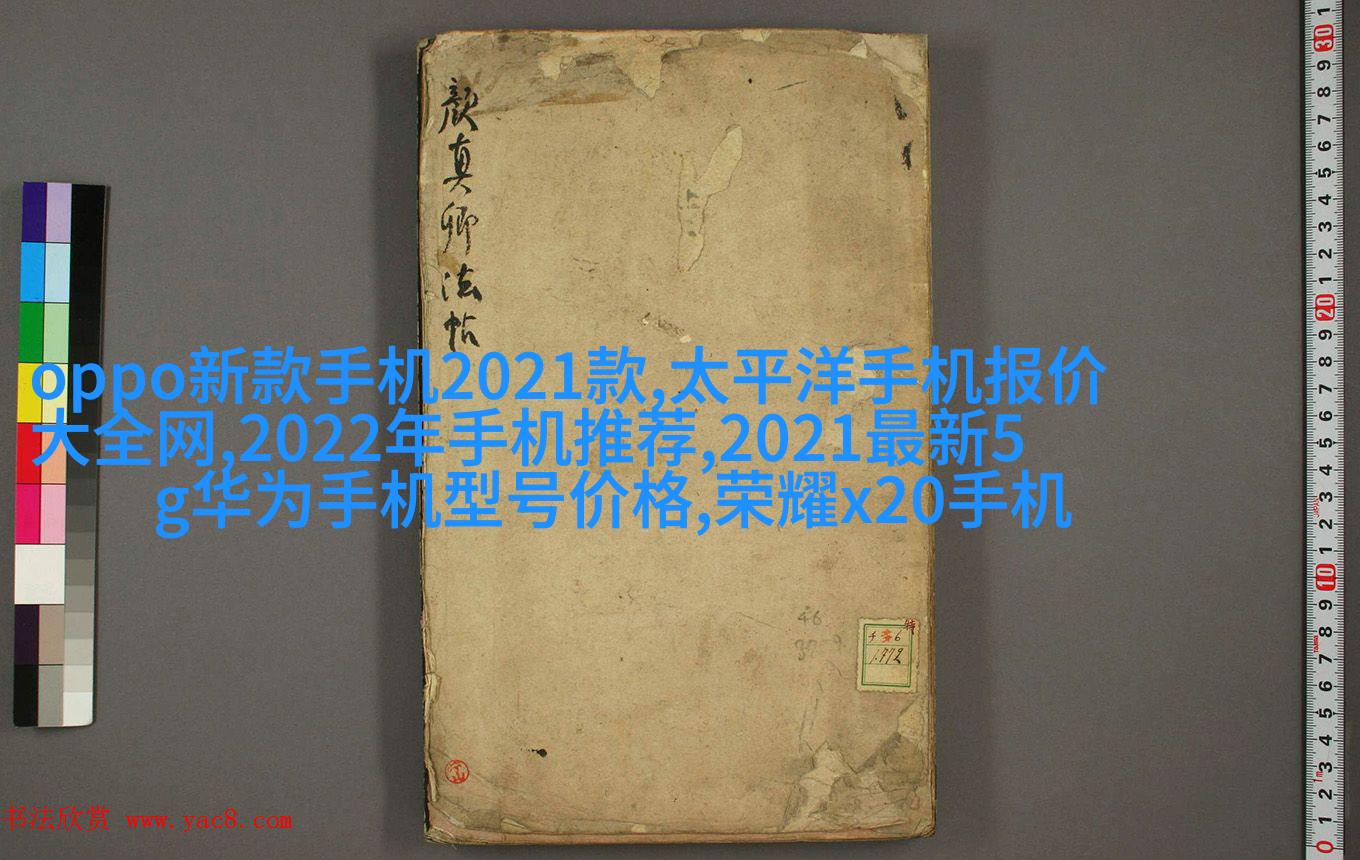 顔真卿法帖
oppo新款手机2021款,太平洋手机报价
大全网,2022年手机推荐,2021最新5
g华为手机型号价格,荣耀x20手机
46
特
1772
书法欣赏 www.yac8.com